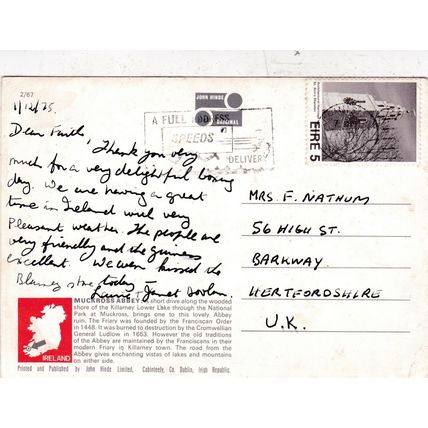 2/67
1/12/75.
JOHN HINDE
ORIGINAL
A FULL ADDRESS
SPEEDS
DELIVERY
ÉIRE 5
Dear Faith,
Thank you very
much for a very delightful
day. We are having a great
time in Ireland with very
Pleasant weather. The people are
very friendly and the guiness
excellent. We even kissed the
Blarney stone today
Janet
MRS. F. NATHUM
56 HIGH ST.
BARKWAY
HERTFORDSHIRE
U.K.
MUCKROSS ABBEY: A short drive along the wooded
shore of the Killarney Lower Lake through the National
Park at Muckross, brings one to this lovely Abbey
ruin. The Friary was founded by the Franciscan Order
in 1448. It was burned to destruction by the Cromwellian
General Ludlow in 1653. However the old traditions
of the Abbey are maintained by the Franciscans in their
modern Friary in Killarney town. The road from the
Abbey gives enchanting vistas of lakes and mountains
on either side.
IRELAND
Printed and Published by John Hinde Limited, Cabinteely, Co. Dublin, Irish Republic.